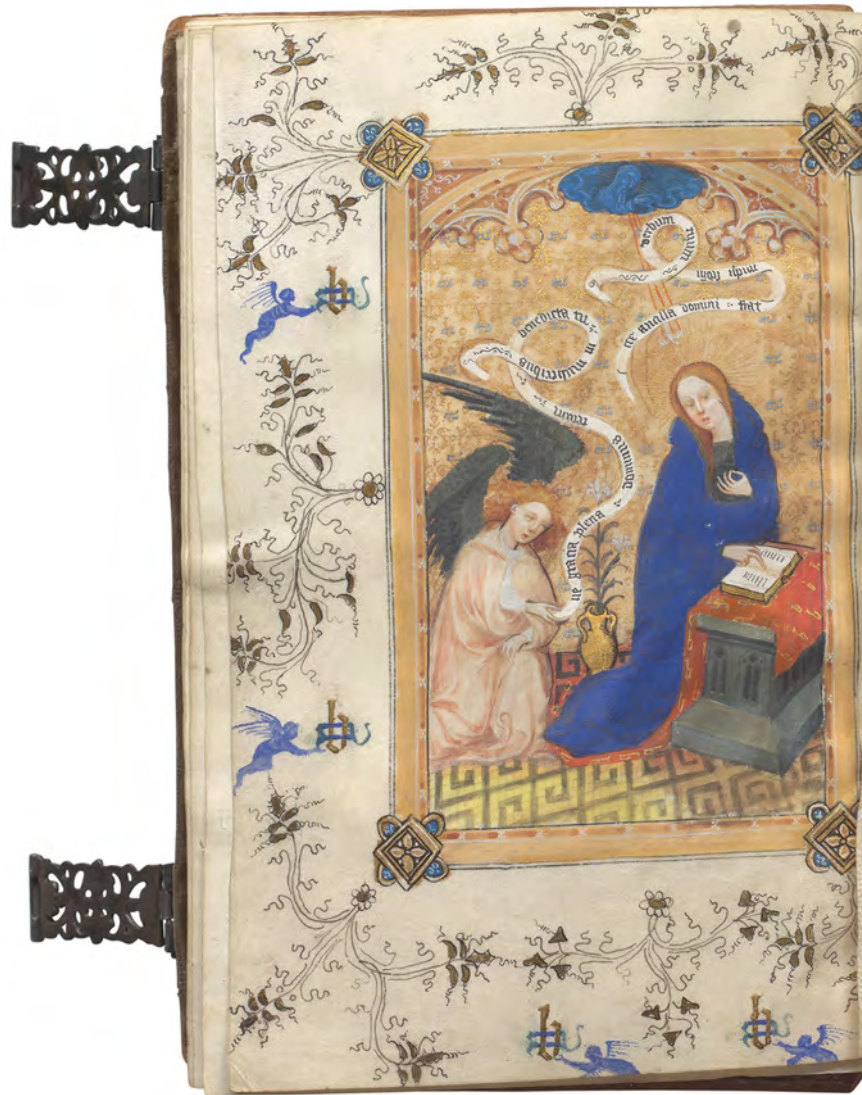 ue gracia plena : dominus
tecum
benedicta tu
in mulieribus
ce ancilla domini : fiat
michi
verbum
tuum